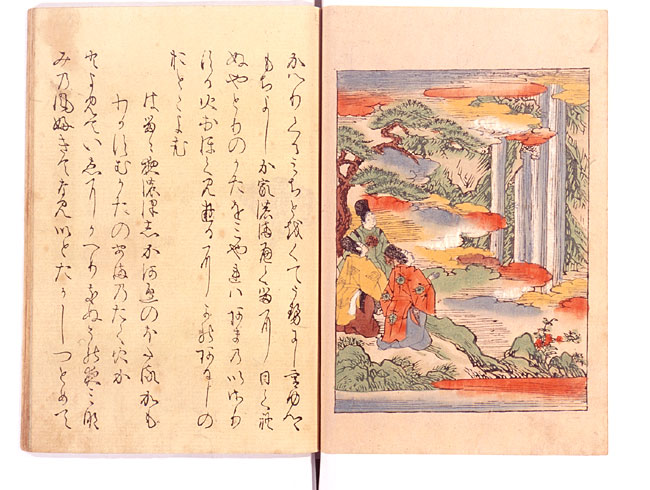 かへりくるみちとをくてうせにし宮内卿
もちよしか家のまへくるに日くれ
ぬやとりのかたをみやれはあまのいさり
火おほく見ゆるにかのあるしの
おとこよむ
はるゝ夜のほしか河邊のほたるかも
わかすむかたのあまのたく火か
とよみていゑにかへりきぬその夜みな
みの風ふきてなみいとたかしつとめて